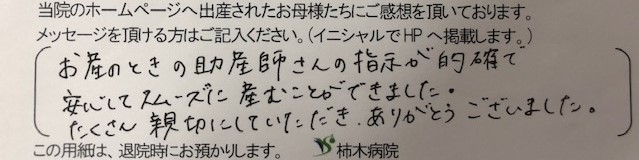 当院のホームページへ出産されたお母様たちにご感想を頂いております。
メッセージを頂ける方はご記入ください。(イニシャルでHPへ掲載します。)
お産のときの助産師さんの指示が的確で
安心してスムーズに産むことができました。
たくさん親切にしていただき、ありがとうございました。
この用紙は、退院時にお預かりします。 柿木病院